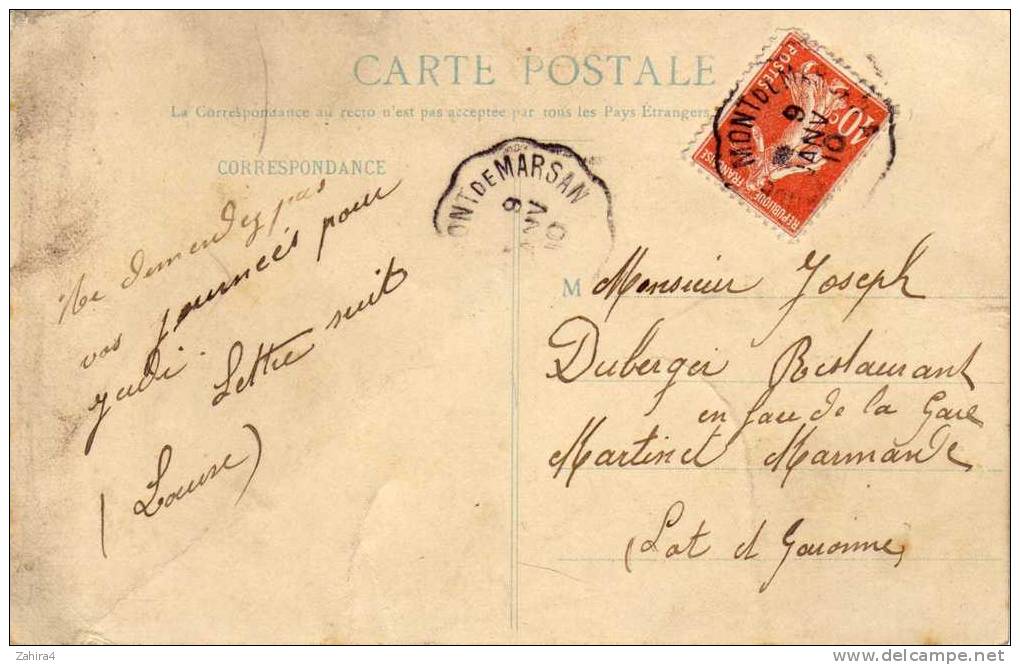 CARTE POSTALE
La Correspondance au recto n'est pas acceptée par tous les Pays Étrangers
CORRESPONDANCE
MONT DE MARSAN
9
JANV
10
POSTES
10 c
REPUBLIQUE FRANÇAISE
MONT DE MARSAN
9
JANV
10
Ne demandez pas
vos journeés pour
jeudi.
Lettre suit
(Louise)
M Monsieur Joseph
Duberger Restaurant
en face de la Gare
Martinet Marmande
(Lot et Garonne)
Zahira4
www.delcampe.net